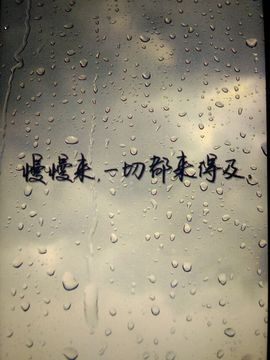 慢慢来，一切都来得及。